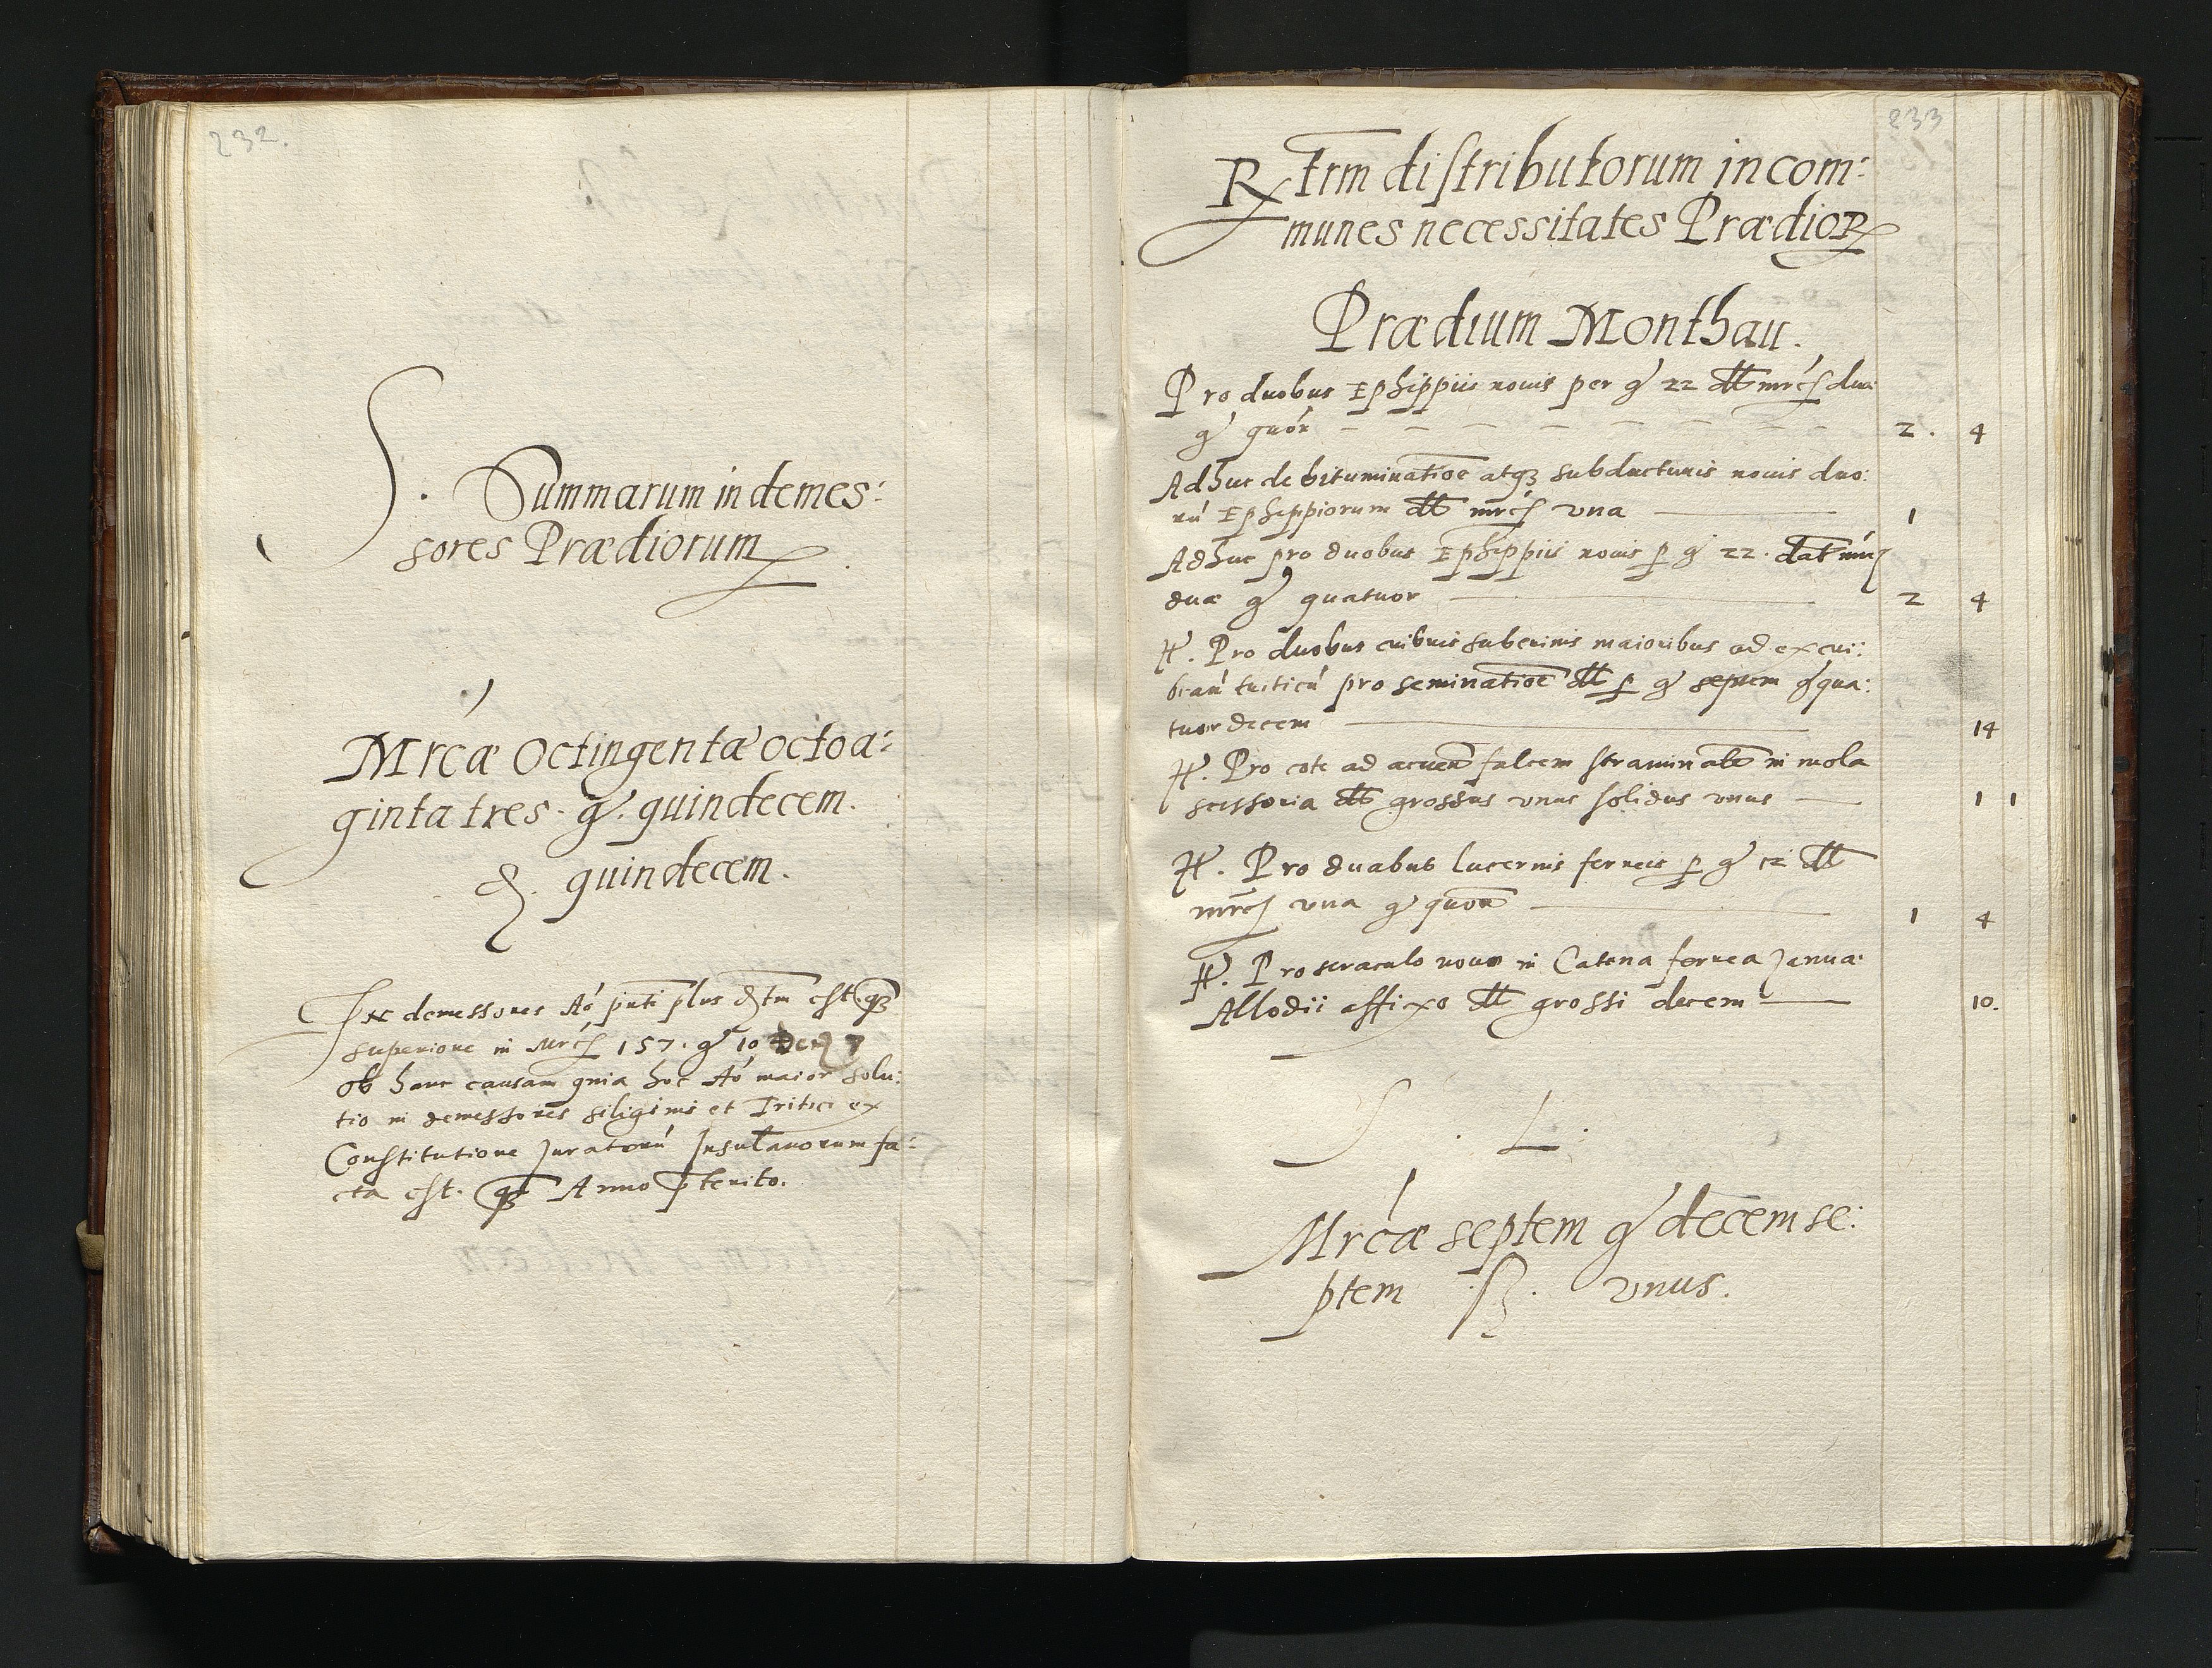 232.
S. Summarum in demes:
sores Prædiorum
Mrcæ Octingentæ octoa:
ginta tres. g. quindecem.
d. quindecem.
In demessores Aō pnti plus dtm est qz
superiore in Mrcs 157. g 10
ob hanc causam quia hoc Aō maior solu:
tio in demessores siliginis et Tritici ex
Constitutione Juratorū Insulanorum fa:
cta est. qz Anno p̄terito.
233
Rtrm distributorum in com:
munes necessitates PrædioR
Prædium Monthau.
Pro duobus Ephippiis nouis per g 22 dtt mrcs duæ
g quōr 2. 4
Adhuc de bituminatioe atqz subductturis nouis duo:
rū Ephippiorum dtt mrcs vna 1
Adhuc pro duobus Ephippiis nouis p g 22. dat mrcs
duæ g quatuor 2 4
It. Pro duobus cribris suberinis maioribus ad excri:
brād triticū pro seminatioe dtt p g septem g qua:
tuordecem 14
It. Pro cote ad acuend falcem straminatē in mola
scissoria dtt grossus vnus solidus vnus 1 1
It. Pro duabus lucernis ferreis p g 12 dtt
mrcs vna g quōr 1 4
It. Pro seraculo nouo in Catena ferrea Janua:
Allodii affixo dtt grossi decem 10.
S. L.
Mrcæ septem g decemse:
ptem ß. vnus.